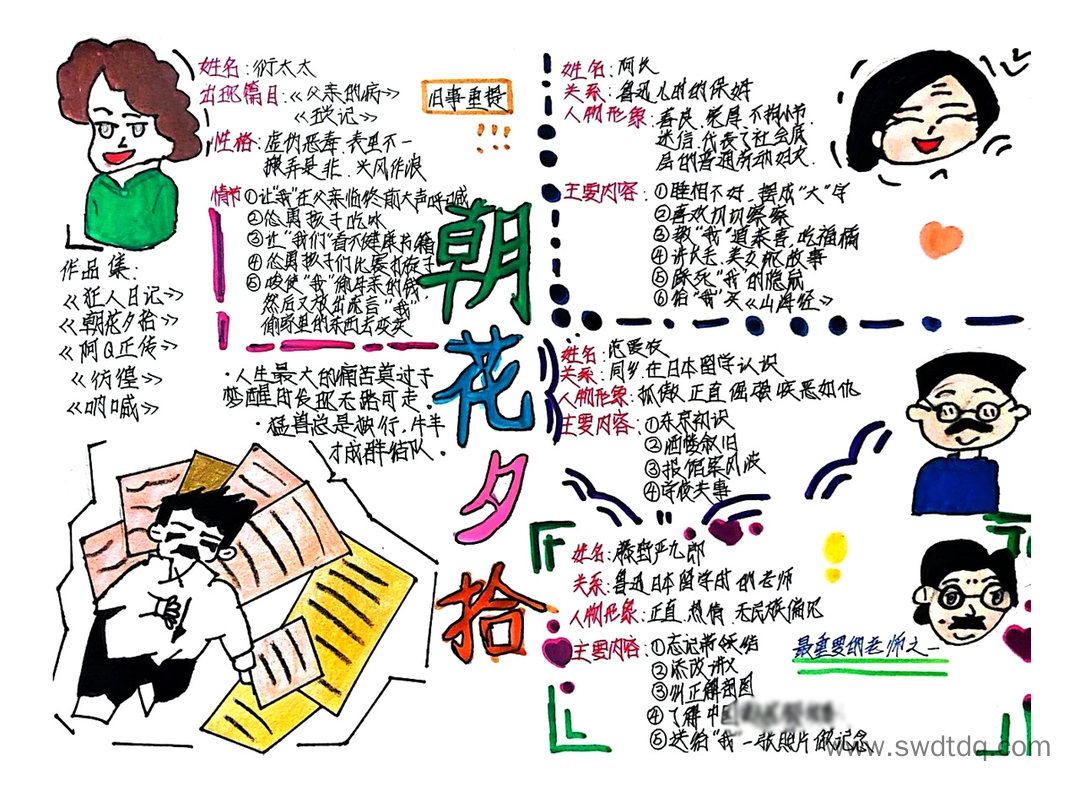 姓名：衍太太
出现篇目：《父亲的病》
《琐记》
性格：虚伪恶毒 表里不一
搬弄是非 兴风作浪
情节①让“我”在父亲临终前大声呼喊
②怂恿孩子吃冰
③让“我们”看不健康书籍
④怂恿孩子们比赛打旋子
⑤唆使“我”偷母亲的钱
然后又放出流言“我”
偷家里的东西去变卖
旧事重提
作品集：
《狂人日记》
《朝花夕拾》
《阿Q正传》
《彷徨》
《呐喊》
·人生最大的痛苦莫过于
梦醒时发现无路可走.
·猛兽总是独行，牛羊
才成群结队.
朝花夕拾
姓名：阿长
关系：鲁迅儿时的保姆
人物形象：善良 宽厚 不拘小节
迷信，代表了社会底
层的普通劳动妇女.
主要内容：①睡相不好，摆成“大”字
②喜欢切切察察
③教“我”道恭喜，吃福橘
④讲长毛、美女蛇故事
⑤踩死“我”的隐鼠
⑥给“我”买《山海经》
姓名：范爱农
关系：同乡，在日本留学认识
人物形象：孤傲 正直 倔强 疾恶如仇
主要内容：①东京初识
②酒楼叙旧
③报馆案风波
④学校失事
姓名：藤野严九郎
关系：鲁迅日本留学时的老师
人物形象：正直 热情 无民族偏见
主要内容：①忘记带领结
②添改讲义
③纠正解剖图
④了解中
⑤送给“我”一张照片做纪念
最重要的老师之一
www.swdtdq.com